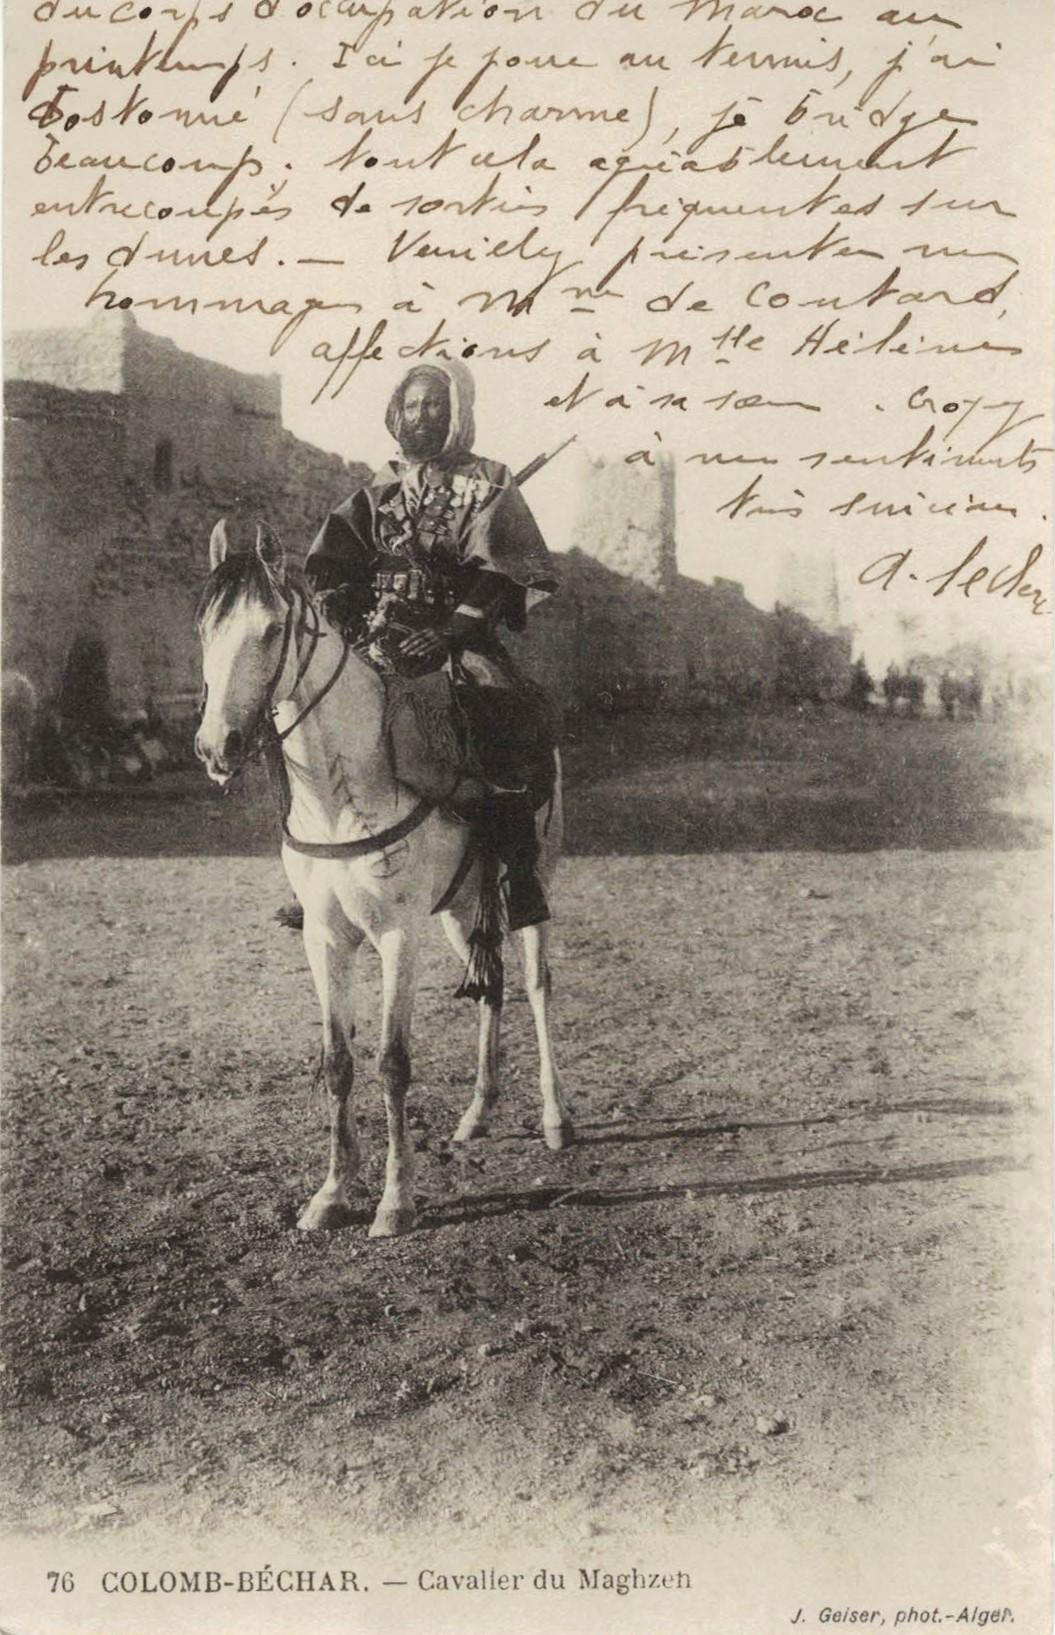 du corps d'occupation du Maroc au
printemps. Ici je joue au tennis, j'ai
bostonné (sans charme), je bridge
beaucoup. tout cela agréablement
entrecoupés de sorties fréquentes sur
les dunes. — Veuillez présenter mes
hommages à Mme de Coutard,
affections à Mlle Hélène
et à sa sœur. Croyez
à mes sentiments
très sincères.
A. Leclerc
76 COLOMB-BÉCHAR. — Cavalier du Maghzen
J. Geiser, phot.-Alger.